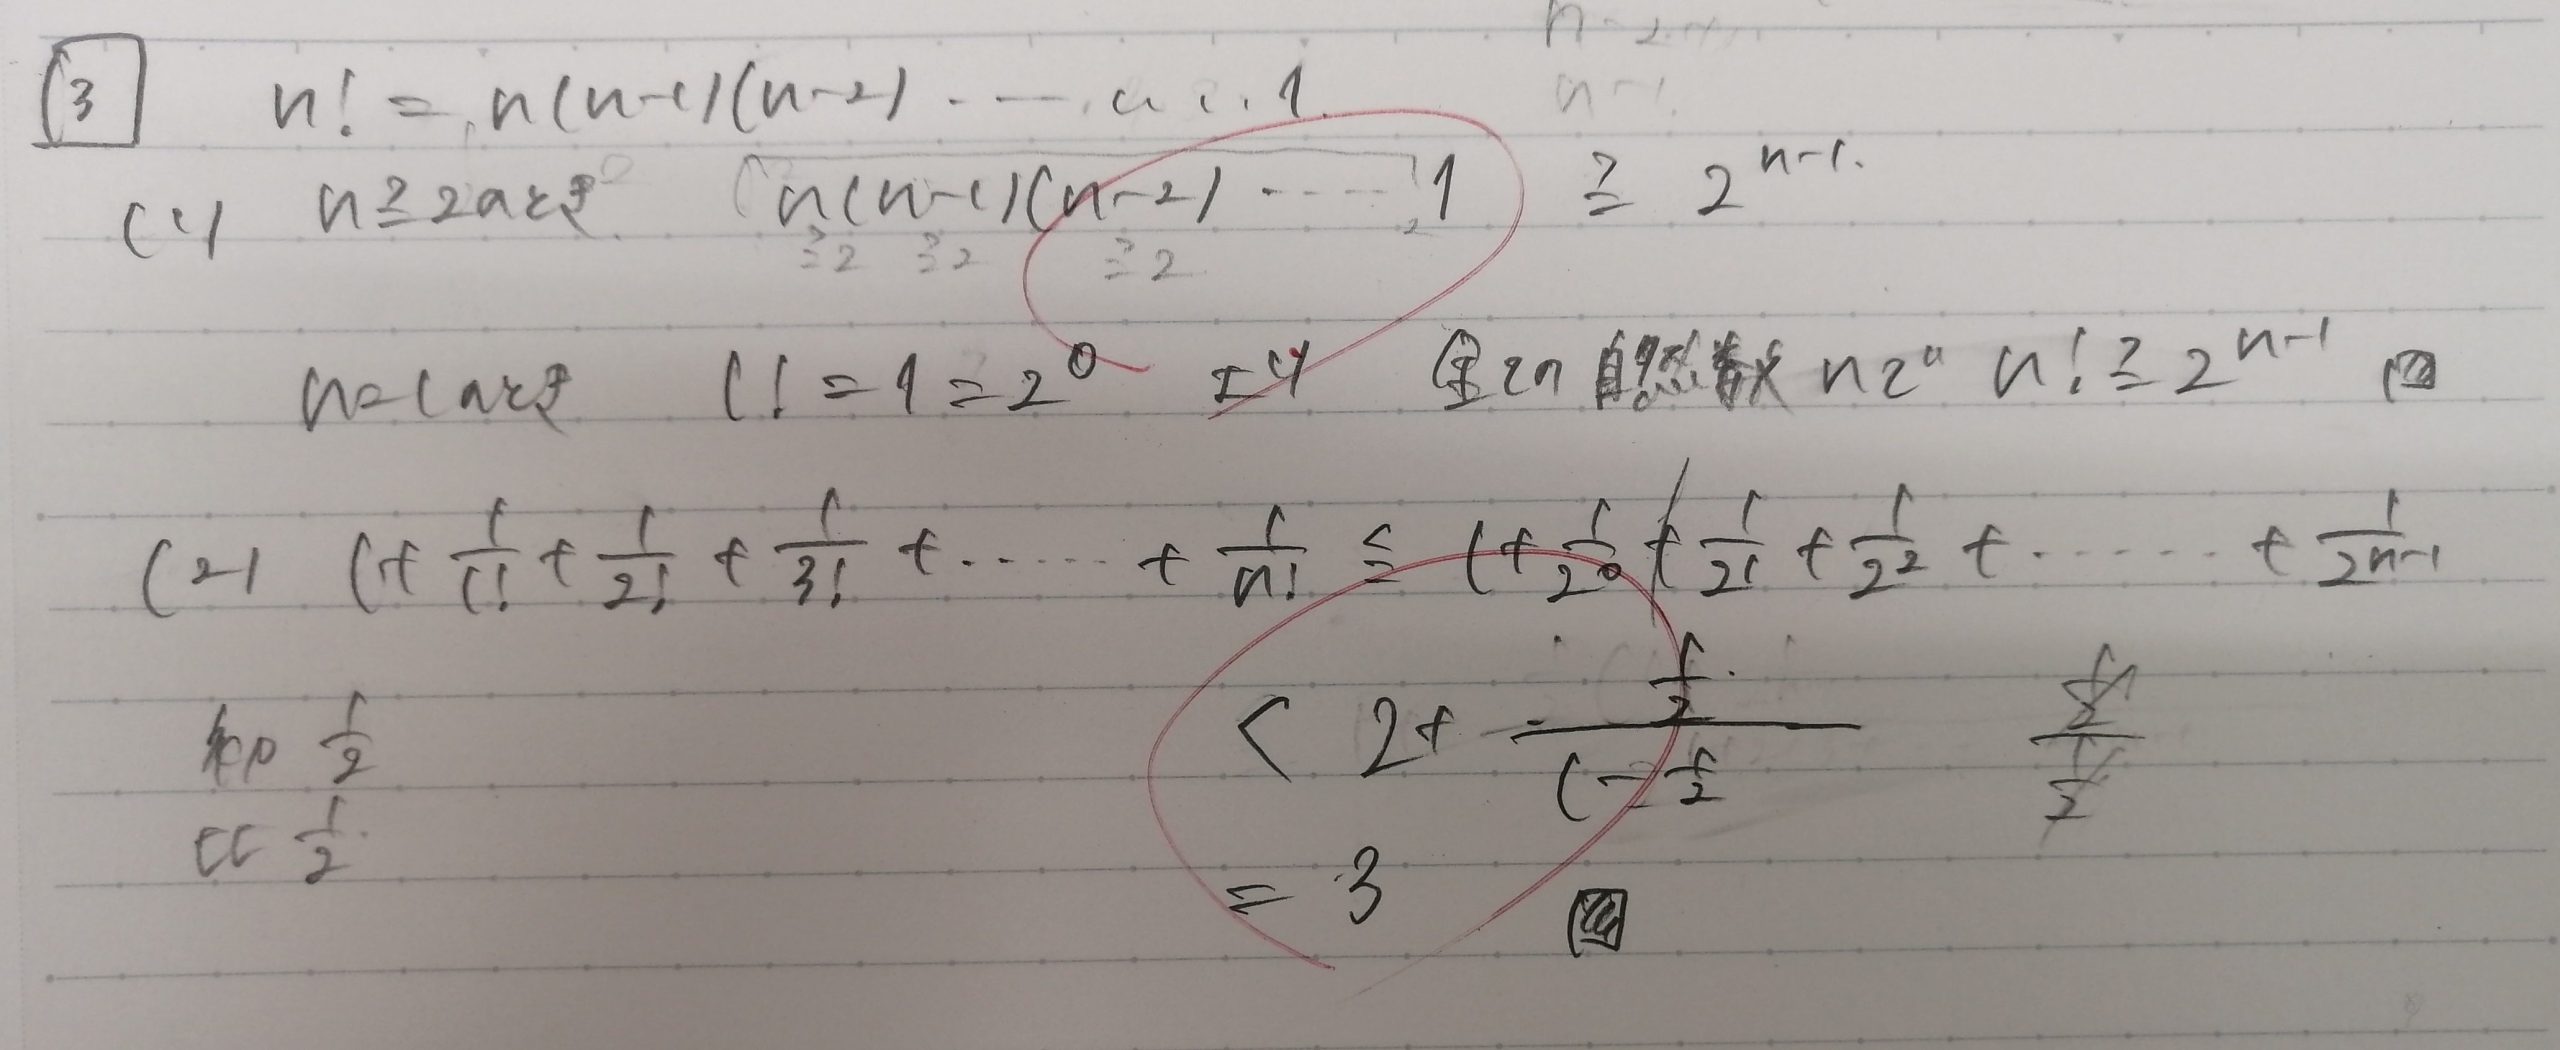 3 n! = n(n-1)(n-2) ‥‥ 1
(1) n≧2のとき n(n-1)(n-2) ‥‥ 1 ≧ 2^{n-1}.
≧2 ≧2 ≧2
n=1のとき 1! = 1 = 2^0 より 全ての自然数nで n! ≧ 2^{n-1}
(2) 1 + 1/1! + 1/2! + 1/3! + ‥‥ + 1/n! ≦ 1 + 1/2^0 + 1/2^1 + 1/2^2 + ‥‥ + 1/2^{n-1}
初め 1/2 < 2 + (1/2)/(1 - 1/2) (1/2)/(1/2)
比 1/2
= 3